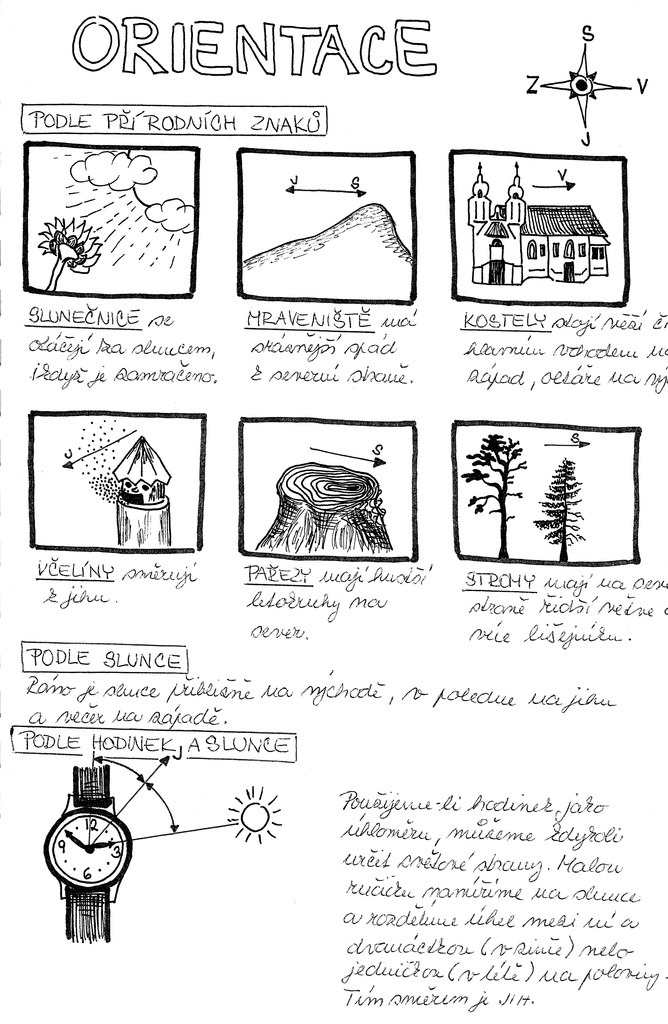 ORIENTACE
S
Z V
J
PODLE PŘÍRODNÍCH ZNAKŮ
J S
V
SLUNEČNICE se
otáčejí za sluncem,
i když je zamračeno.
MRAVENIŠTĚ má
strmější spád
z severní straně.
KOSTELY stojí věží
hlavním vchodem
západ, oltáře na
J
S
S
VČELÍNY směrují
k jihu.
PAŘEZY mají hustší
letokruhy na
sever.
STROMY mají na
straně řidší větve
více lišejníku.
PODLE SLUNCE
Ráno je slunce přibližně na východě, v poledne na jihu
a večer na západě.
PODLE HODINEK A SLUNCE
J
12
9 3
6
Použijeme-li hodinek, jako
úhloměru, můžeme kdykoli
určit světové strany. Malou
ručičku namíříme na slunce
a rozdělíme úhel mezi ní a
dvanáctkou (v zimě) nebo
jedničkou (v létě) na poloviny.
Tím směrem je JIH.